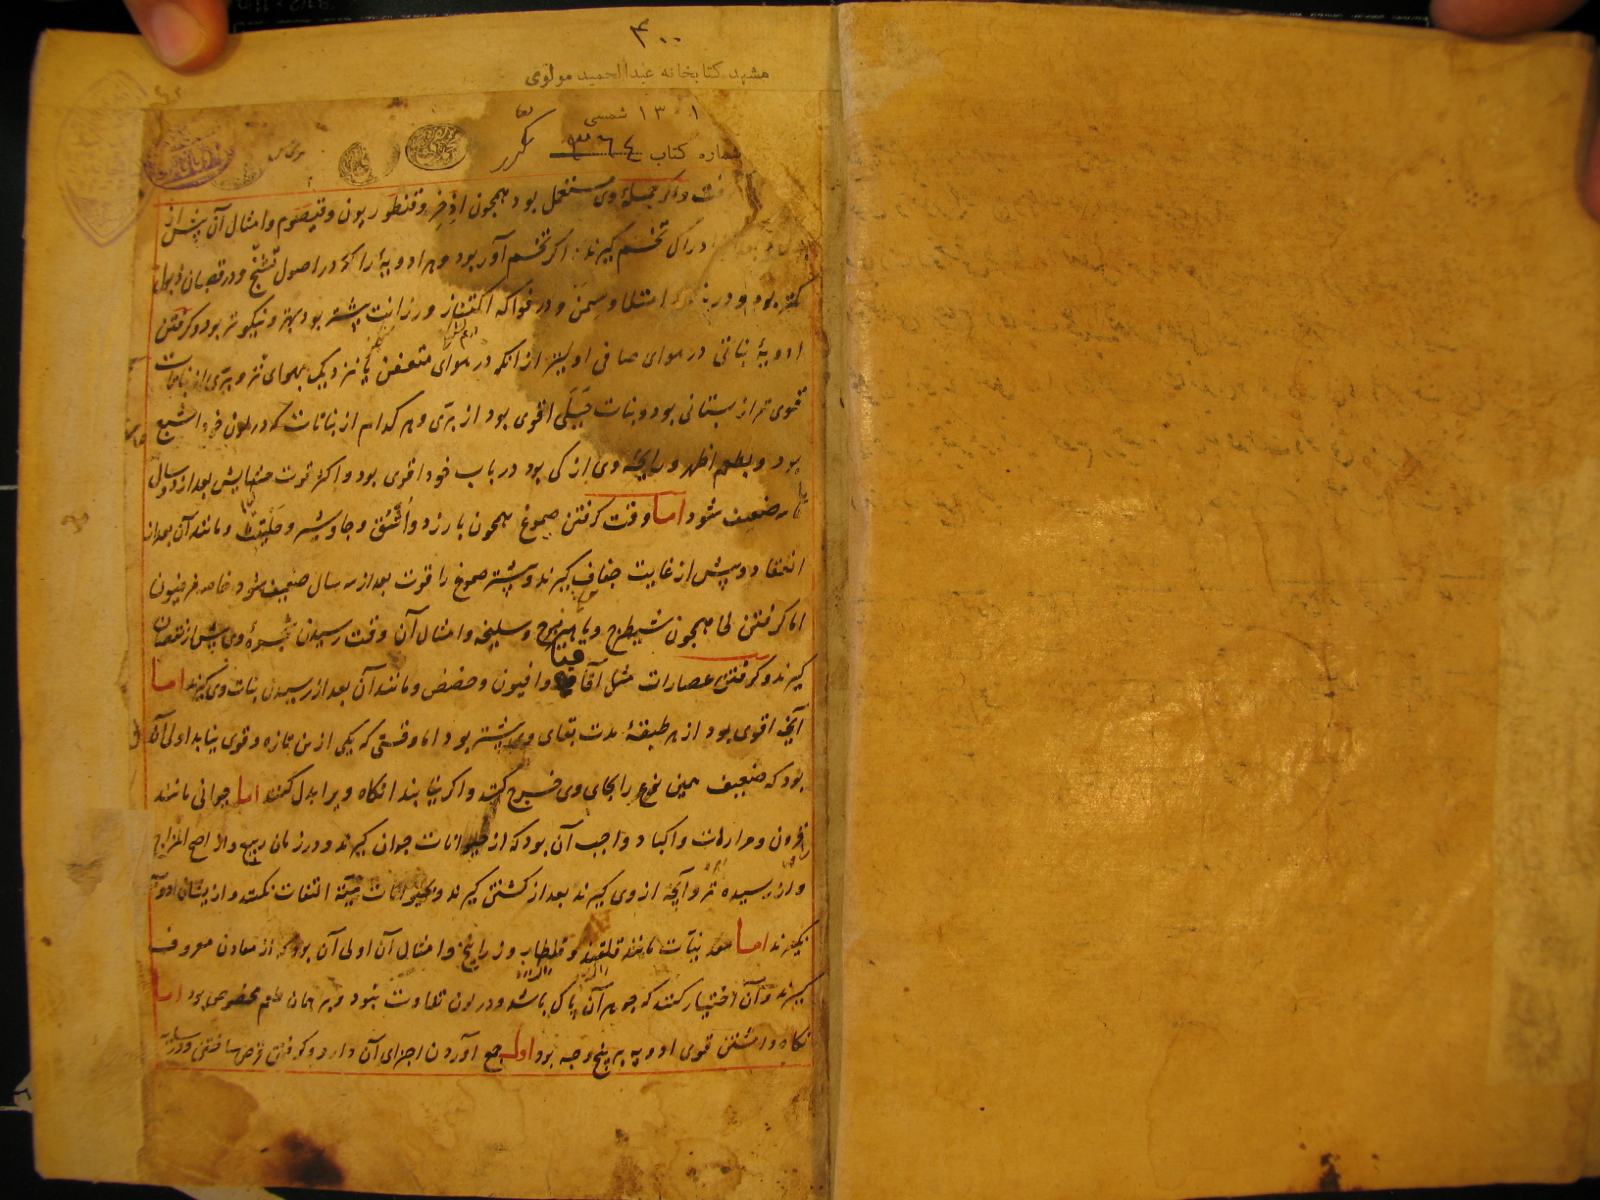 ۴۰۰
مشهد کتابخانه عبدالحمید مولوی
۱۳۰۱ شمسی
شماره کتاب ۳۶۴
واکر جملهٔ وی مستعمل بود همچون اذخر و قنطوریون و قیصوم و امثال آن پیش از
ادراک تخم گیرند اکر تخم آور بود و هر ادویهٔ را که در اصول تشنج و در قضبان ذبول
کمتر بود و در امتلا و سمن و در فواکه اکتناز و رزانت بیشتر بود بهتر و نیکوتر بود و کرفتن
ادویهٔ نباتی در هوای صافی اولیتر از انکه در هوای متعفن یا نزدیک بهوای تر و بری از نباتات
قوی تر از بستانی بود و نبات جبلی اقوی بود از بری و هر کدام از نباتات که در لون خود اشبع
بود و بطعم اظهر و رایحه وی ازکی بود در باب خود اقوی بود و اکثر قوت حشایش بعد از دو سال
ضعیف شود اما وقت کرفتن صموغ همچون بارزد و اشق و جاوشیر و حلتیت و مانند آن بعد از
انعقاد و پیش از غایت جفاف گیرند و بیشتر صموغ را قوت بعد از سه سال ضعیف شود خاصه فرفیون
اما کرفتن لحا همچون شیطرج و ماهیزهرج و سلیخه و امثال آن وقت رسیدن ثمرهٔ وی پیش از نقصان
گیرند و کرفتن عصارات مثل آقاقیا و افیون و حضض و مانند آن بعد از رسیدن نبات وی گیرند اما
آنچه اقوی بود از هر طبقهٔ مدت بقای وی بیشتر بود اما وقتی که یکی از تازه و قوی نیابد اولی آن
بود که ضعیف همین نوع را بجای وی خرج کنند و اکر نیابند انکاه ویرا بدل کنند اما حیوانی مانند
قرون و مرارات و اکباد واجب آن بود که از حیوانات جوان گیرند و در زمان ربیع و از اصح المزاج
و از رسیده تر و آنچه از وی گیرند بعد از کشتن گیرند و بحیوانات میته التفات نکنند و از یشان ادویه
نگیرند اما معدنیات مانند قلقند و قلقطار و زرانیخ و امثال آن اولی آن بود که از معادن معروف
گیرند و آن اختیار کنند که جوهر آن پاک باشد و در لون تفاوت نبود و بر همان طعم مخصوص بود اما
نکاه داشتن قوی ادویه بر پنج وجه بود اول جمع آوردن اجزای آن دارو و کوفتن قرص ساختن و در سایه